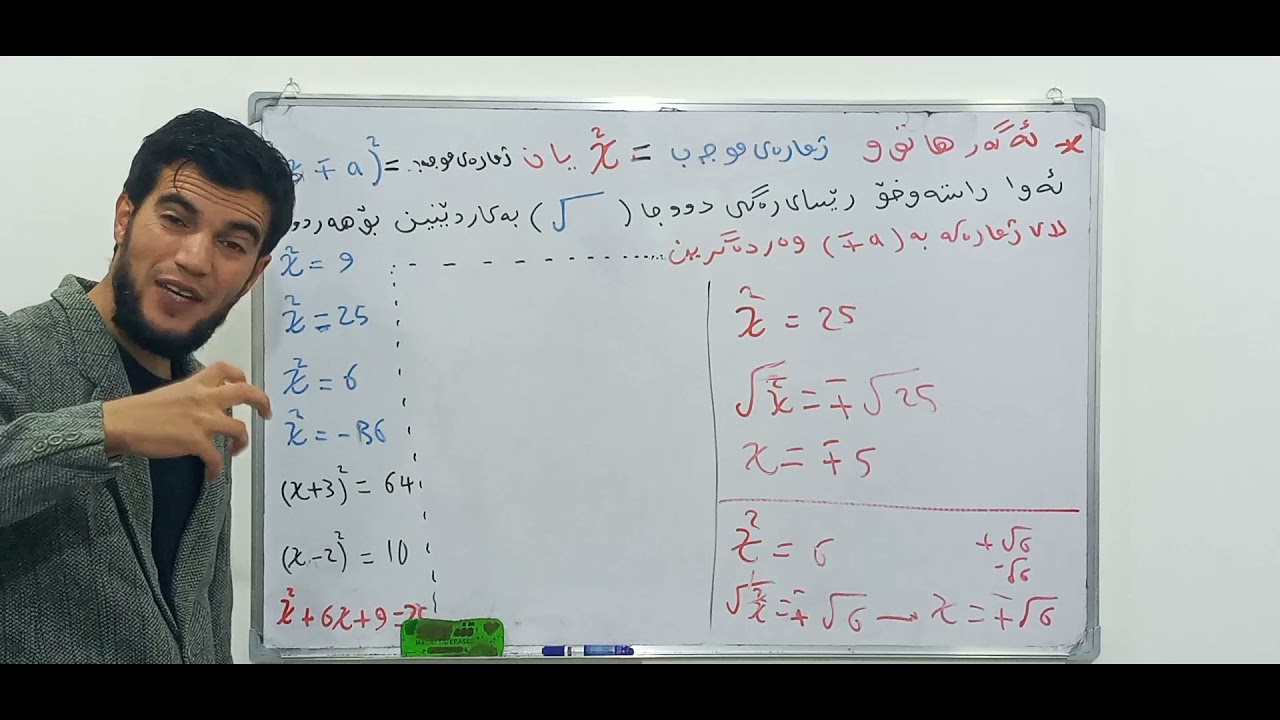 * ئەگەر هاتوو ژمارەی موجەب = x² یان ژمارەی موجەب = (x ∓ a)²
ئەوا راستەوخۆ رێسای رەگی دووجا (√) بەکاردێنین بۆ هەردوو
لای ژمارەکە بە (∓a) وەردەگرین
x² = 9
x² = 25
x² = 6
x² = -36
(x+3)² = 64
(x-2)² = 10
x² + 6x + 9 = 25
x² = 25
√x² = ∓√25
x = ∓5
x² = 6
+√6
-√6
√x² = ∓√6 → x = ∓√6